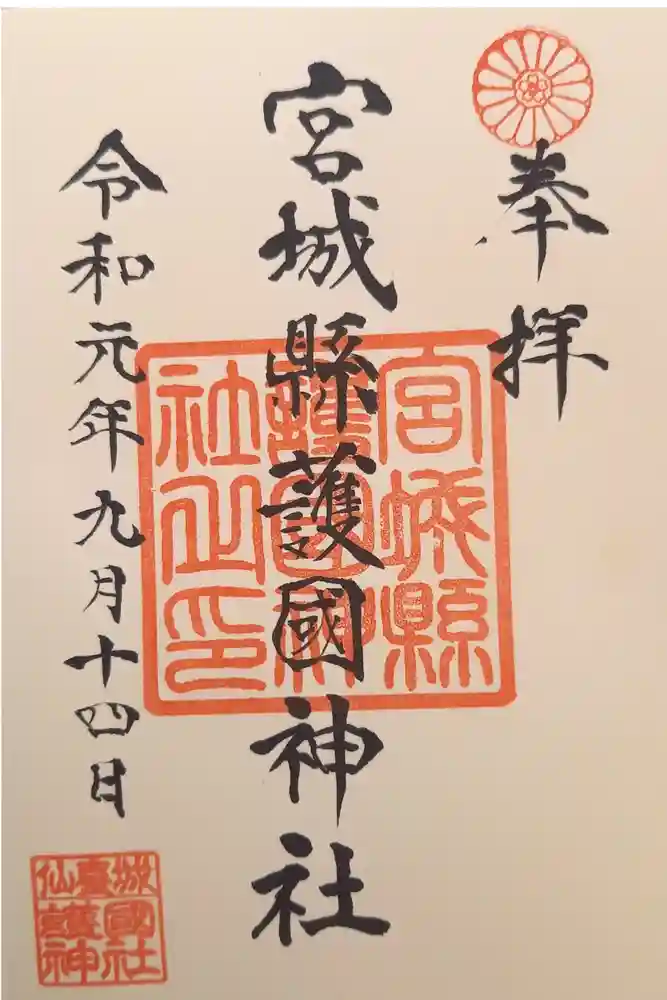 奉拝
宮城縣護國神社
宮城縣
護國神
社之印
令和元年九月十四日
仙臺城
護國
神社